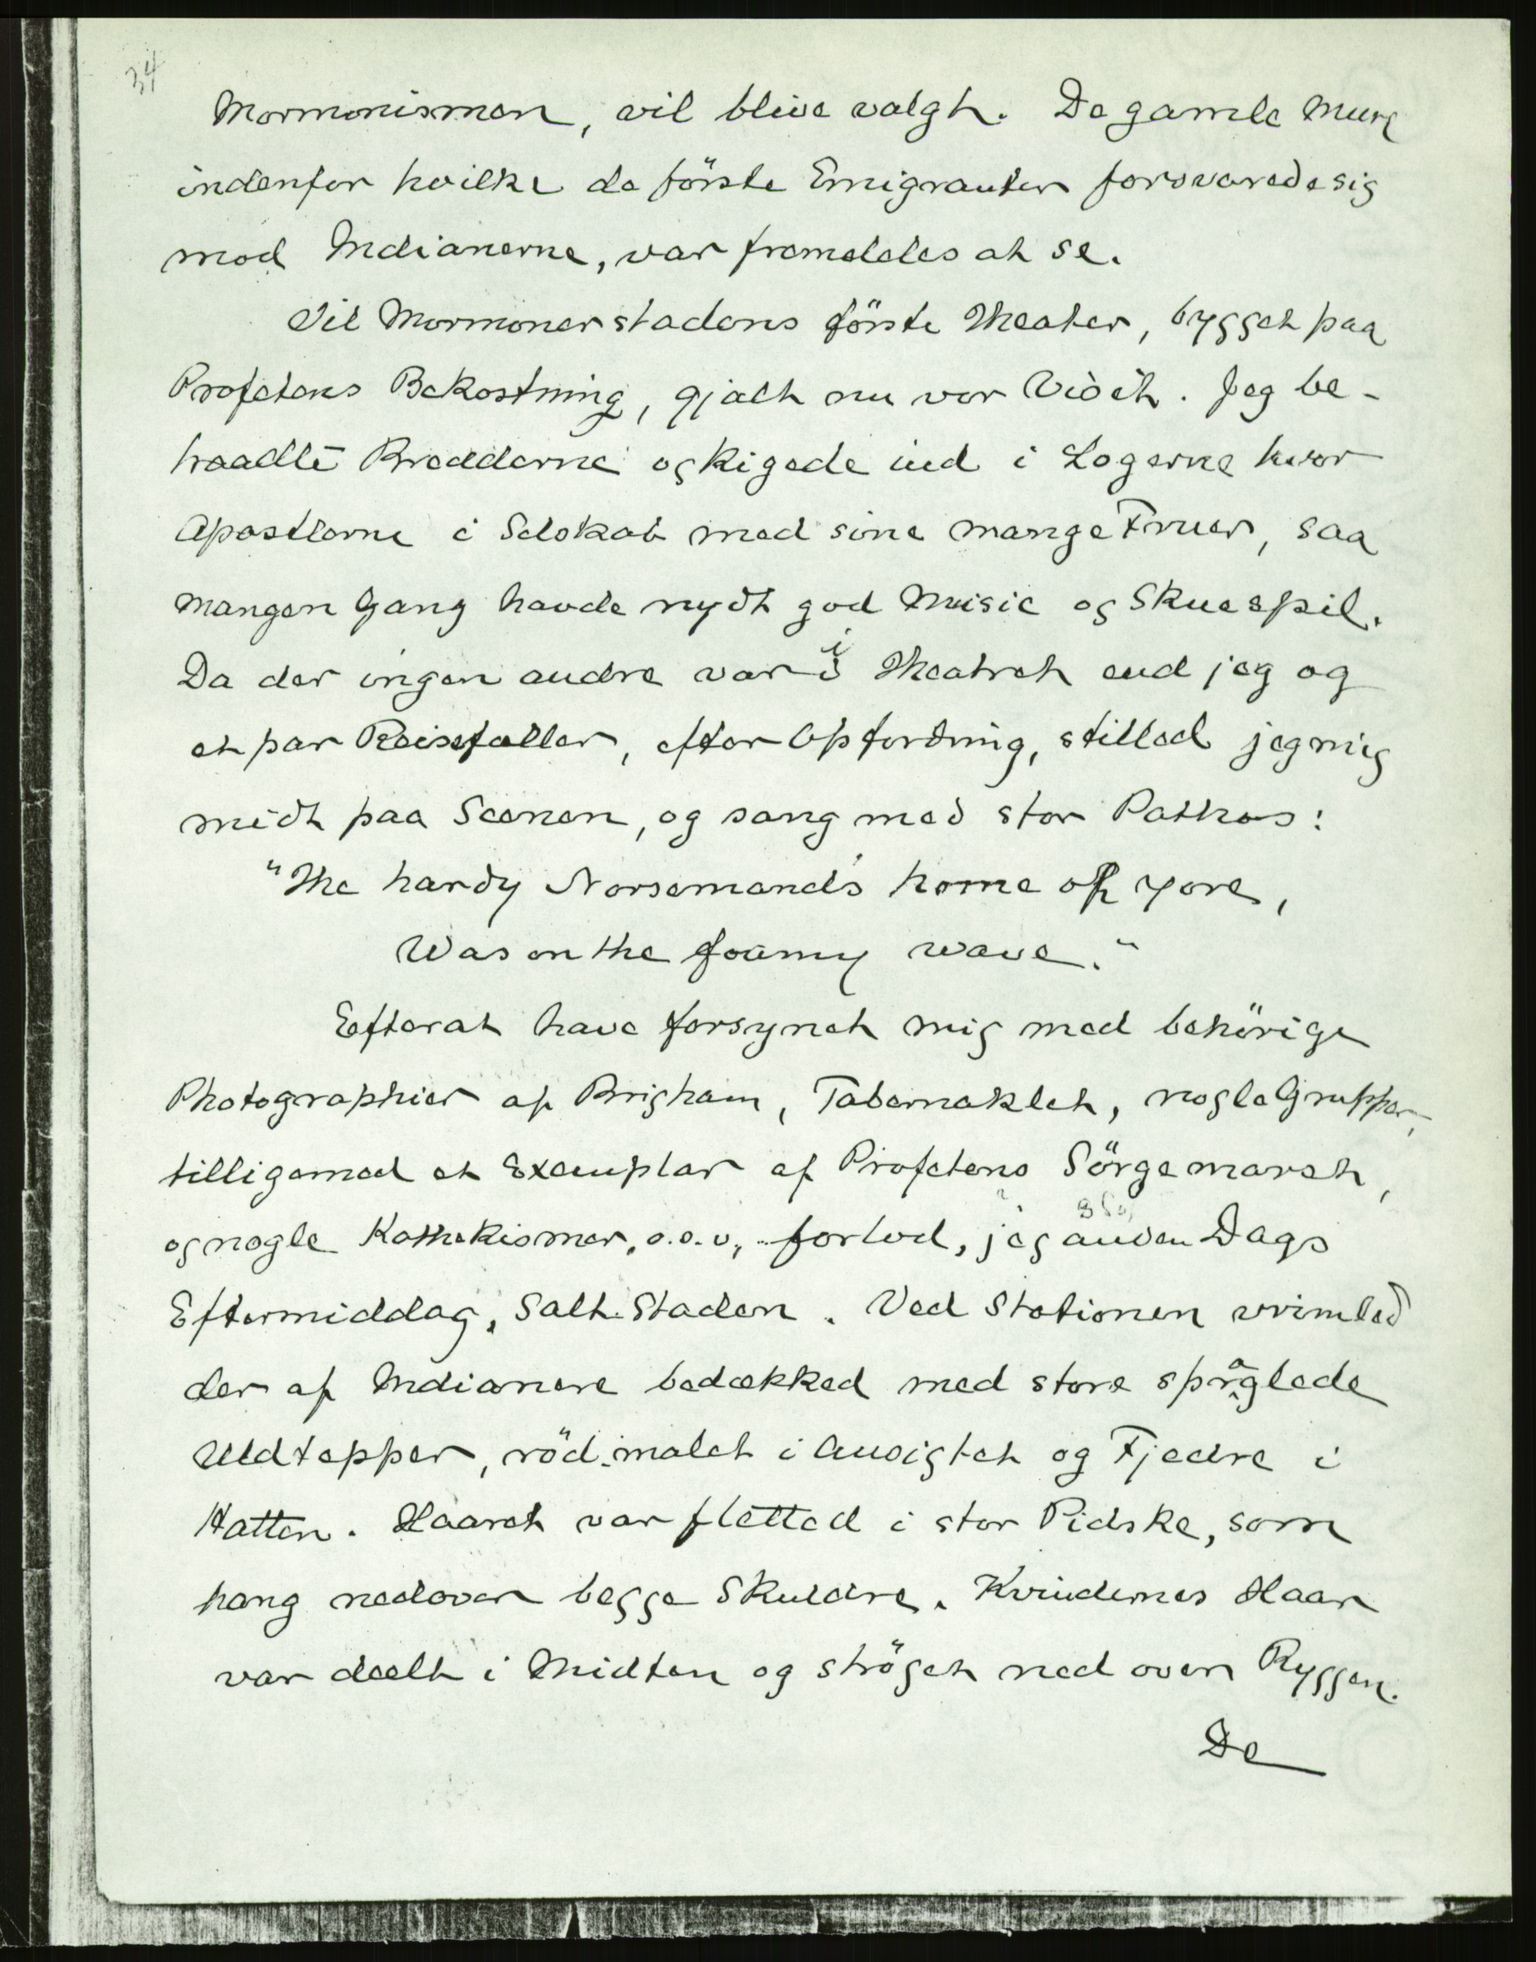 34
Mormonismen, vil blive valgt. De gamle Mure
indenfor hvilke de förste Emigranter forsvarede sig
mod Indianerne, var fremdeles at se.
Til Mormonerstadens förste Theater, bygget paa
Profetens Bekostning, gjalt nu vor Visit. Jeg be-
traadte Brædderne og kigede ind i Logerne hvor
Apostlerne i Selskab med sine mange Fruer, saa
mangen Gang havde nydt god Music og Skuespil.
Da der ingen andre var i Theatret end jeg og
et par Reisefæller, efter Opfordring, stilled jeg mig
midt paa Scenen, og sang med stor Pathos:
"The hardy Norsemand's home of yore,
Was on the foamy wave."
Efterat have forsynet mig med behörige
Photographier af Brigham, Tabernaklet, nogle Grupper,
tilligemed et Exemplar af Profetens Sörgemarsch,
og nogle Kathekismer, o.s.v, forlod, jeg anden Dags
Eftermiddag, Salt Staden. Ved Stationen vrimled
der af Indianere bedækked med store spraglede
Uldtepper, röd malet i Ansigtet og Fjedre i
Hatten. Haaret var fletted i stor Pidske, som
hang nedover begge Skuldre. Kvindernes Haar
var deelt i Midten og ströget ned over Ryggen.
De